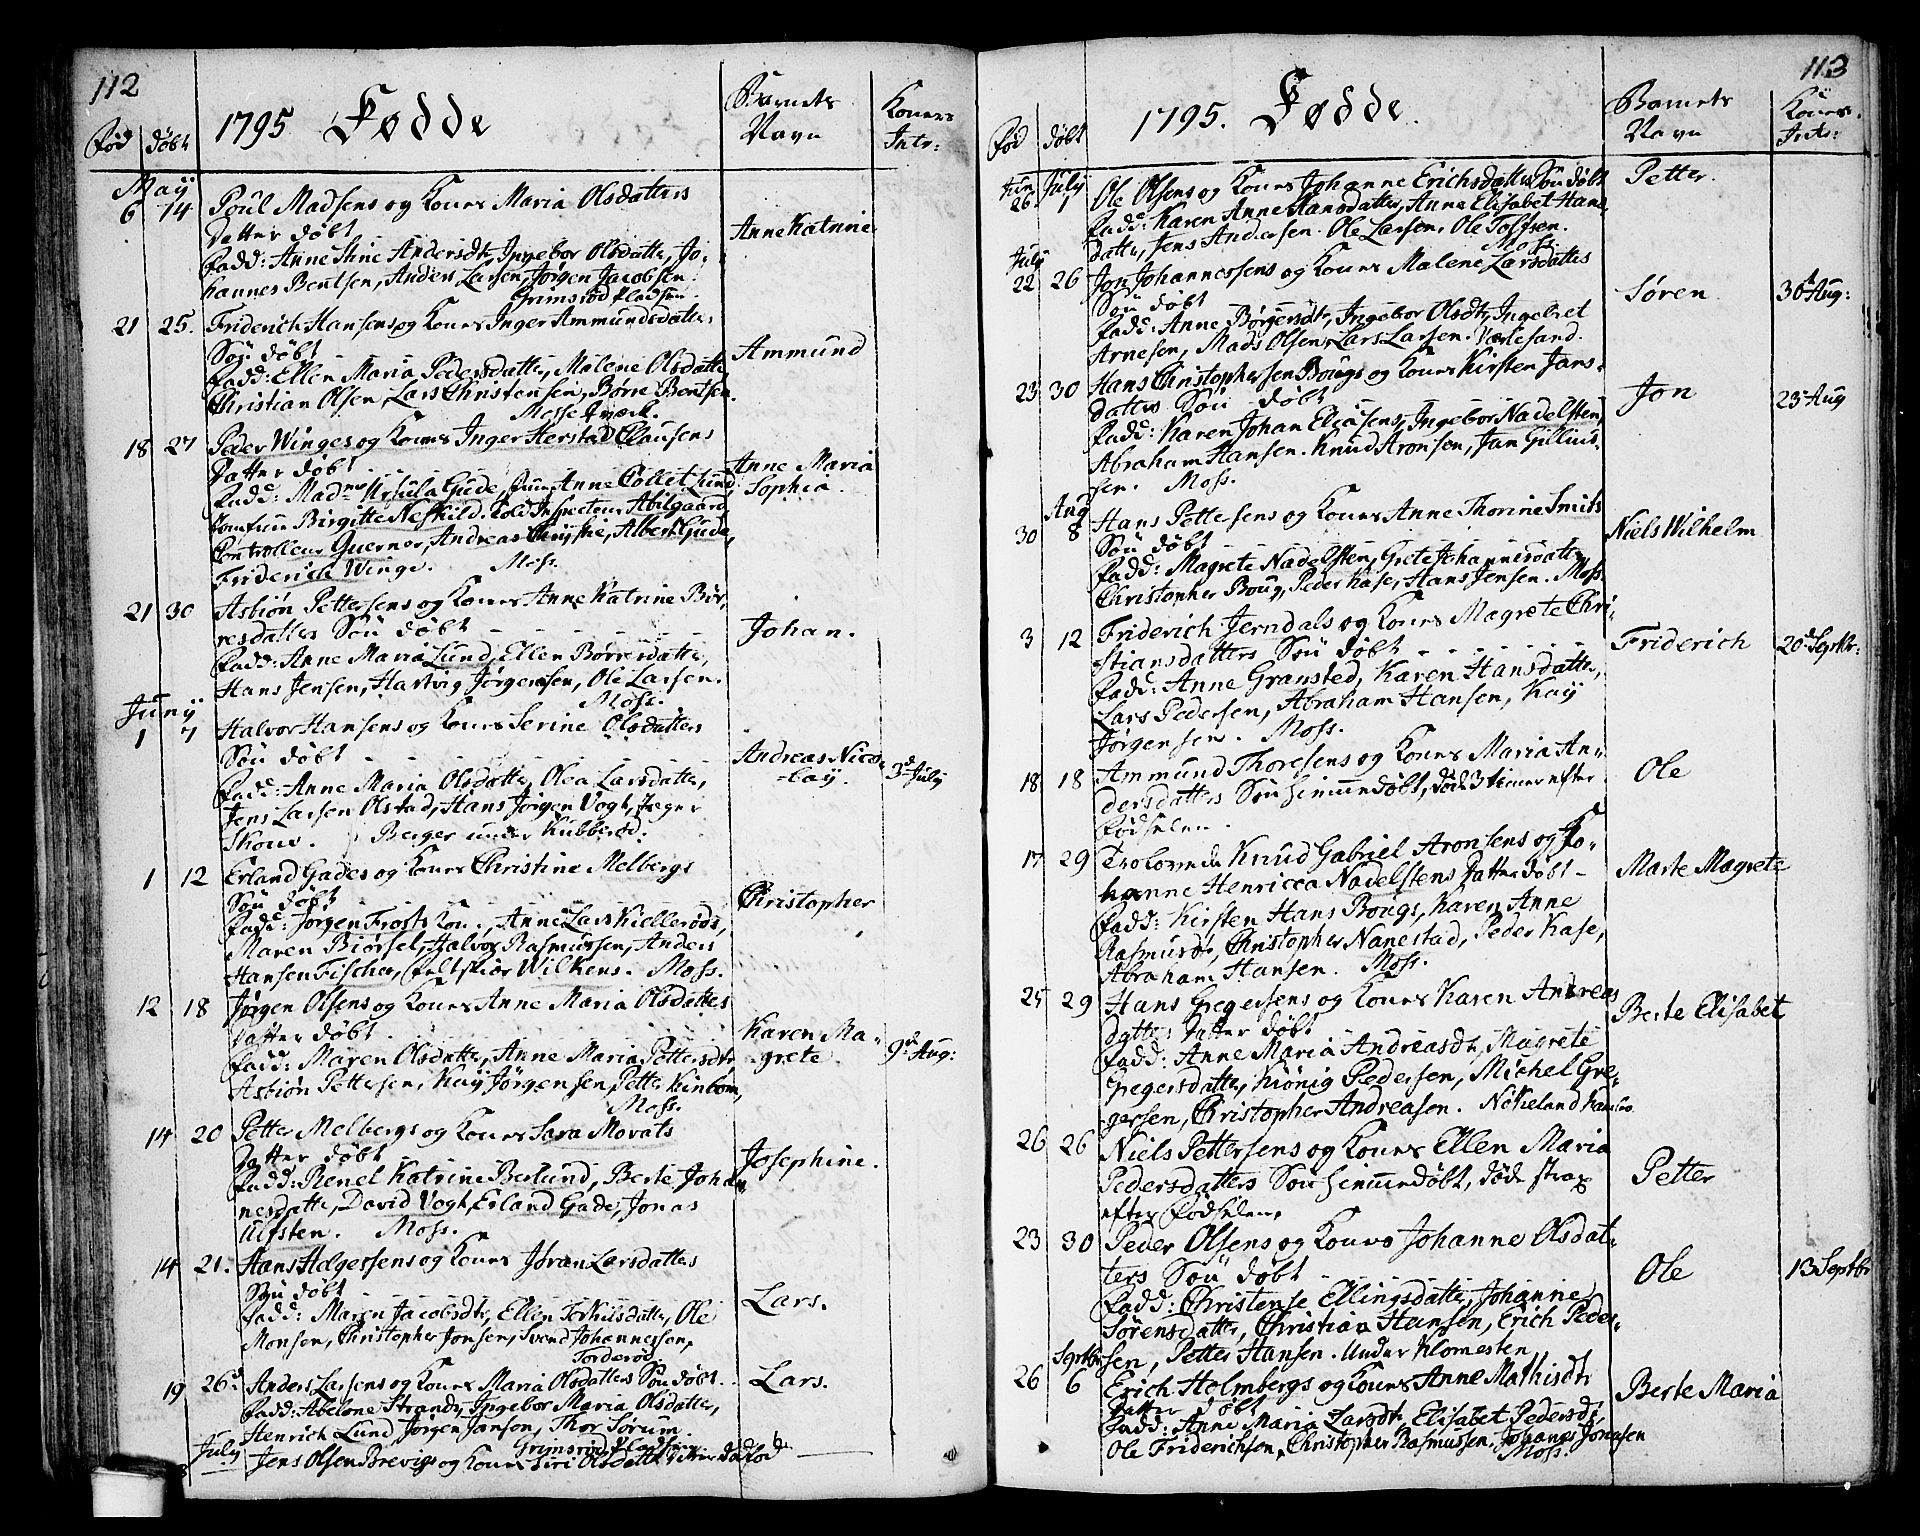 112
1795 Fødde
Barnets Navn
Koners Intr:
Fød døbt
May
6 14 Poul Madsens og Kones Maria Olsdatters
Datter døbt
Anne Katrine
Fadd: Anne Stine Andersdt, Ingebor Olsdatter, Jo-
hannes Bentsen, Anders Larsen, Jørgen Jacobsen
Grimsrød pladsen.
21 25. Friderich Hansens og Kones Inger Ammundsdatters
Søn døbt
Ammund
Fadd: Ellen Maria Pedersdatter, Malene Olsdatter,
Christian Olsen, Lars Christensen, Børre Bentsen.
Mosse Jværk.
18 27 Peder Winges og Kones Inger Herstad Clausens
Datter døbt
Anne Maria Sophia.
Fadd: Madme Ursula Gude, Frue Anne Collet Lund,
Jomfrue Birgitte Neskild. Told Inspecteur Abilgaard,
Controlleur Guerner, Andreas Chrystie, Albert Gude,
Friderich Winge. Moss.
21 30 Asbiøn Pettersens og Kones Anne Katrine Bør-
resdatters Søn døbt
Johan.
Fadd: Anne Maria Lund, Ellen Børresdatter,
Hans Jensen, Hartvig Jørgensen, Ole Larsen.
Moss.
Juny
1 7 Halvor Hansens og Kones Serine Olsdatters
Søn døbt
Andreas Nico-
lay.
3d July
Fadd: Anne Maria Olsdatter, Olea Larsdatter,
Jens Larsen Olstad, Hans Jørgen Vogt, Jæger
Skoue. Berger under Kubberød.
1 12 Erland Gades og Kones Christine Melbergs
Søn døbt
Christopher
Fadd: Jørgen Frosts Kone, Anne Lars Kiellerøds,
Maren Biørsel, Halvor Rasmussen, Anders
Hansen Fischer, Feltskiør Wilkens. Moss.
12 18 Jørgen Olsens og Kones Anne Maria Olsdatters
Datter døbt.
Karen Ma-
grete.
9d Aug:
Fadd: Maren Olsdatter, Anne Maria Pettersdtr
Asbiøn Pettersen, Kay Jørgensen, Petter Kinbom,
Moss.
14 20 Petter Melbergs og Kones Sara Morats
Datter døbt
Josephine.
Fadd: Renel Katrine Berlund, Berte Johan-
nesdatter, David Vogt, Erland Gade, Jonas
Ulfsten. Moss.
14 21. Hans Holgersens og Kones Jøran Larsdatters
Søn døbt
Lars.
Fadd: Maren Jacobsdt, Ellen Terkilsdatter, Ole
Monsen, Christopher Jonsen, Svend Johannessen,
Torderød
19 26d Anders Larsens og Kones Maria Olsdatters Søn døbt.
Lars.
Fadd: Abelone Strands, Ingebor Maria Olsdatter,
Henrich Lund, Jørgen Janson, Thor Sørum.
Grimsrød Pladsen
July
Jens Olsen Brevigs og Kones Siri Olsdatters Pikebarn dødfød
113
1795. Fødde.
Barnets Navn
Koners Intr:
Fød døbt
Jun July
26 1 Ole Olsens og Kones Johanne Erichsdatters Søn døbt
Petter.
Fadd: Karen Anne Hansdatter, Anne Elisabet Hans-
datter, Jens Andersen. Ole Larsen, Ole Tolfsen.
Moss.
July
22 26 Jon Johannessens og Kones Malene Larsdatters
Søn døbt
Søren.
30d Aug:
Fadd: Anne Børgersdtr, Ingebor Olsdt, Ingebret
Arnesen, Mads Olsen, Lars Larsen. Værlesand.
23 30 Hans Christophersen Bougs og Kones Kirsten Jans-
datters Søn døbt
Jon
23d Aug
Fadd: Karen Johan Eliasens, Ingebor Nadelsten,
Abraham Hansen. Knud Aronsen, Jan Gillius-
sen. Moss.
Aug
30 8 Hans Pettersens og Kones Anne Thorine Smits
Søn døbt
Niels Wilhelm
Fadd: Magrete Nadelsten, Grete Johannesdatter,
Christopher Boug, Peder Kase, Hans Jensen. Moss.
3 12 Friderich Jerndals og Kones Magrete Chri-
stiansdatters Søn døbt
Friderich
20d Septbr:
Fadd: Anne Gransted, Karen Hansdatter,
Lars Pedersen, Abraham Hansen, Kay
Jørgensen. Moss.
18 18 Ammund Thoresens og Kones Maria An-
dersdatters Søn hiemmedøbt, døde 3 timer efter
Fødselen.
Ole
17 29 Trolovede Knud Gabriel Aronsens og Jo-
hanne Henricca Nadelstens Datter døbt
Marte Magrete
Fadd: Kirsten Hans Bougs, Karen Anne
Rasmusdr, Christopher Nanestad, Peder Kase,
Abraham Hansen. Moss.
25 29 Hans Gregersens og Kones Karen Andreas
datters Datter døbt
Berte Elisabet
Fadd: Anne Maria Andreasdt, Magrete
Gregersdatter, Kiønig Pedersen, Michel Gre-
gersen, Christopher Andreasen.
26 26 Niels Pettersens og Kones Ellen Maria
Pedersdatters Søn hiemmedøbt, døde strax
efter Fødselen.
Petter
23 30 Peder Olsens og Kones Johanne Olsdat-
ters Søn døbt
Ole
13 Septbr
Fadd: Christense Ellingsdatter, Johanne
Sørensdatter, Christian Hansen, Erich Peder-
sen, Petter Hansen. Under Klomesten
Septbr
26 6 Erich Holmbergs og Kones Anne Mathisdtr
Datter døbt
Berte Maria
Fadd: Anne Maria Larsdt, Elisabet Pedersdt,
Ole Friderichsen, Christopher Rasmussen, Johanes Jonasen
Moss.